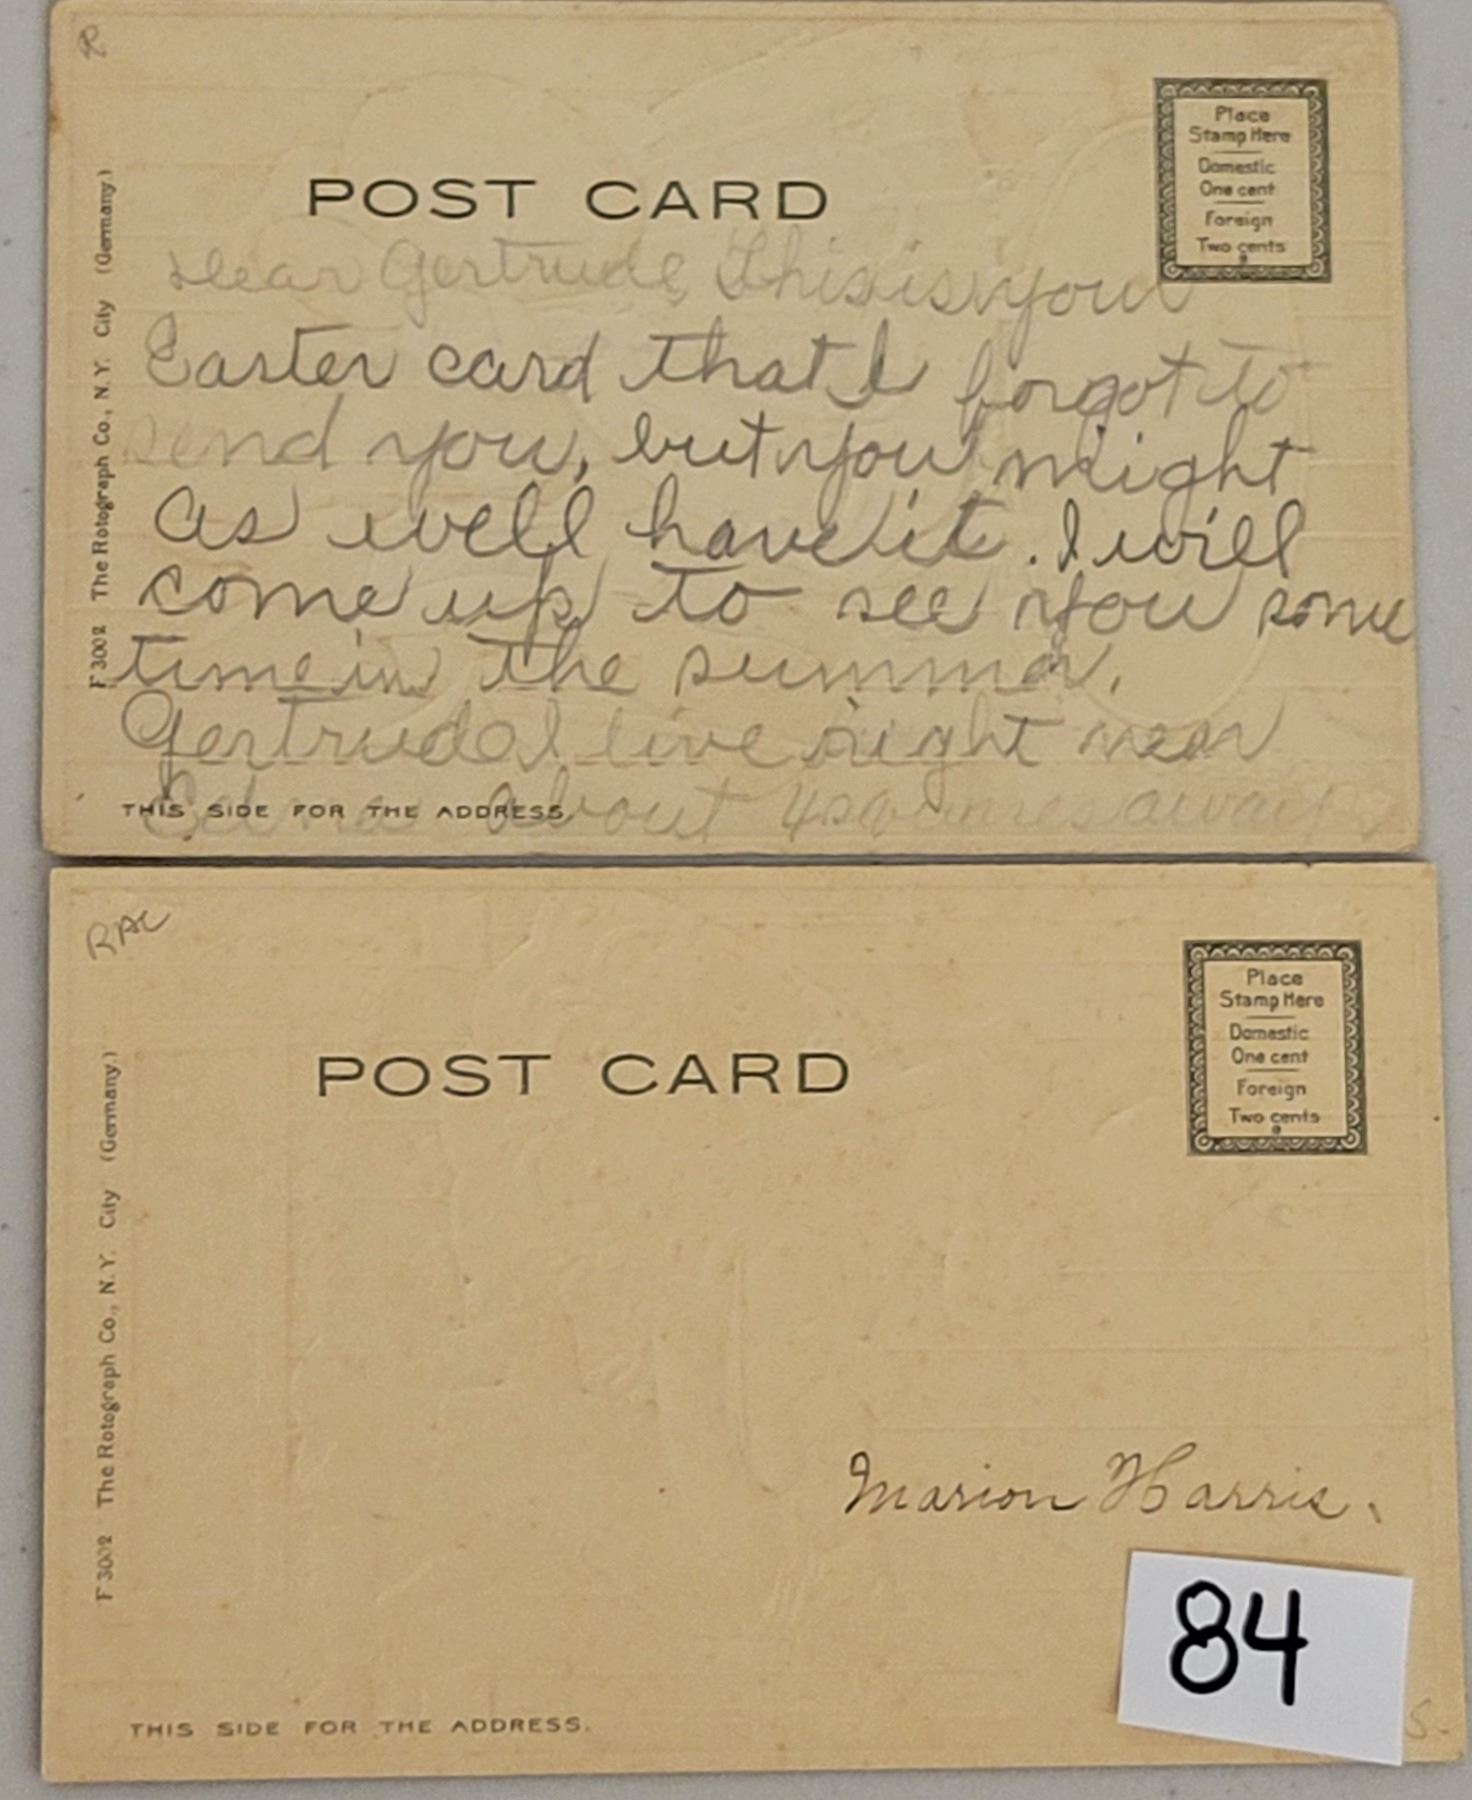 POST CARD
Place
Stamp Here
Domestic
One cent
Foreign
Two cents
F 3002 The Rotograph Co., N. Y. City (Germany.)
Dear Gertrude, This is your
Easter card that I forgot to
send you, but you might
as well have it. I will
come up to see you some
time in the summer.
Gertrude I live right near
Edna about 4 squares away
THIS SIDE FOR THE ADDRESS.
RAC
POST CARD
Place
Stamp Here
Domestic
One cent
Foreign
Two cents
F 3002 The Rotograph Co., N. Y. City (Germany.)
Marion Harris.
84
THIS SIDE FOR THE ADDRESS.
S.